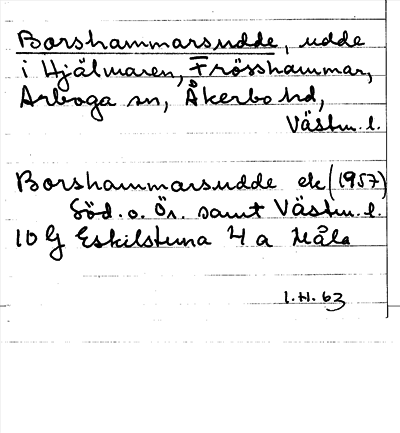 Borshammarsudde, udde
i Hjälmaren, Frösshammar,
Arboga sn, Åkerbo hd,
Västm. l.
Borshammarsudde ek (1957)
Söd. o. Ör. samt Västm. l.
10 G Eskilstuna 4 a Måla
1.H. 63